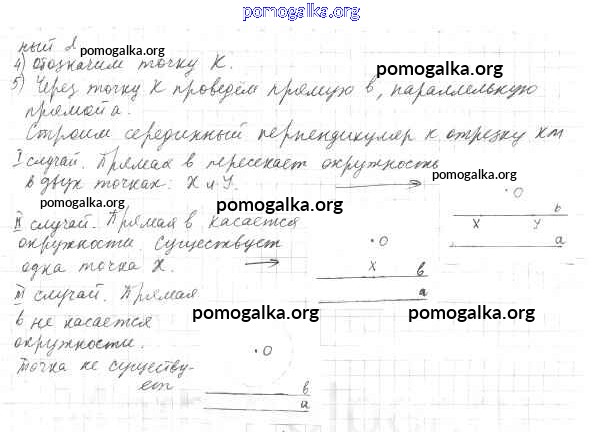 pomogalka.org
ный d
pomogalka.org
4) Обозначим точку К.
pomogalka.org
5) Через точку К проведём прямую в, параллельную
прямой а.
Строим серединный перпендикуляр к отрезку КМ
I случай. Прямая в пересекает окружность
в двух точках: X и Y.
pomogalka.org
O
pomogalka.org
pomogalka.org
II случай. Прямая в касается
X Y в
окружности. Существует
O
а
одна точка X.
X в
III случай. Прямая
а
pomogalka.org
pomogalka.org
в не касается
окружности.
O
Точка не существу-
ет
в
а